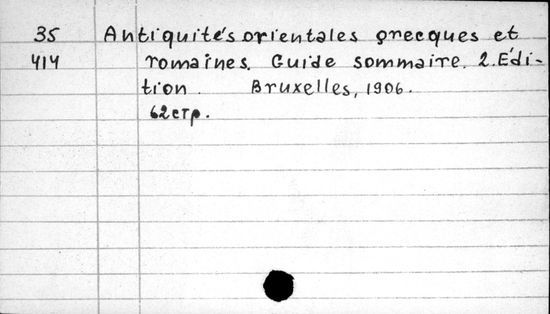 35 Antiquités orientales grecques et
414 romaines. Guide sommaire. 2. Édi-
tion. Bruxelles, 1906.
62 стр.